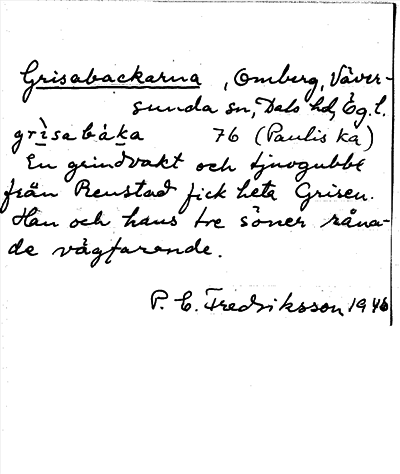 Grisabackarna, Omberg, Väver-
sunda sn, Dals hd, Ög. l.
grìsabáka 76 (Paulis ka)
En grindvakt och tjuvgubbe
från Renstad fick heta Grisen.
Han och hans tre söner råna-
de vägfarende.
P. C. Fredriksson 1946